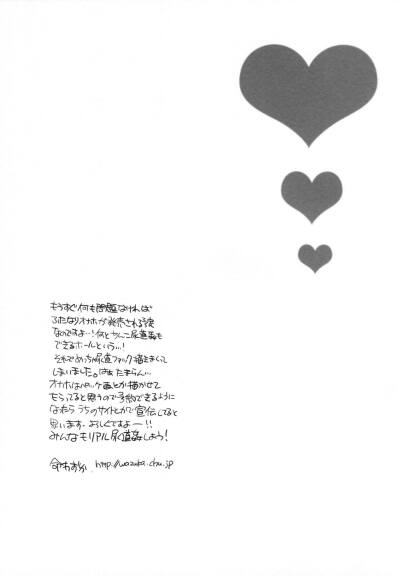 もうすぐ何も問題なければ
ふたなりオナホが発売される予定
なのですよ…!何とちんこ尿道姦も
できるホールという…!
それでめっちゃ尿道ファック描きまくって
しまいました。はぁたまらん…
オナホはパッケ画とか描かせて
もらってると思うので予約できるように
なったらうちのサイトとかで宣伝してると
思います。よろしくですよー!!
みんなもリアル尿道姦しよう!
命わずか http://wazuka.chu.jp